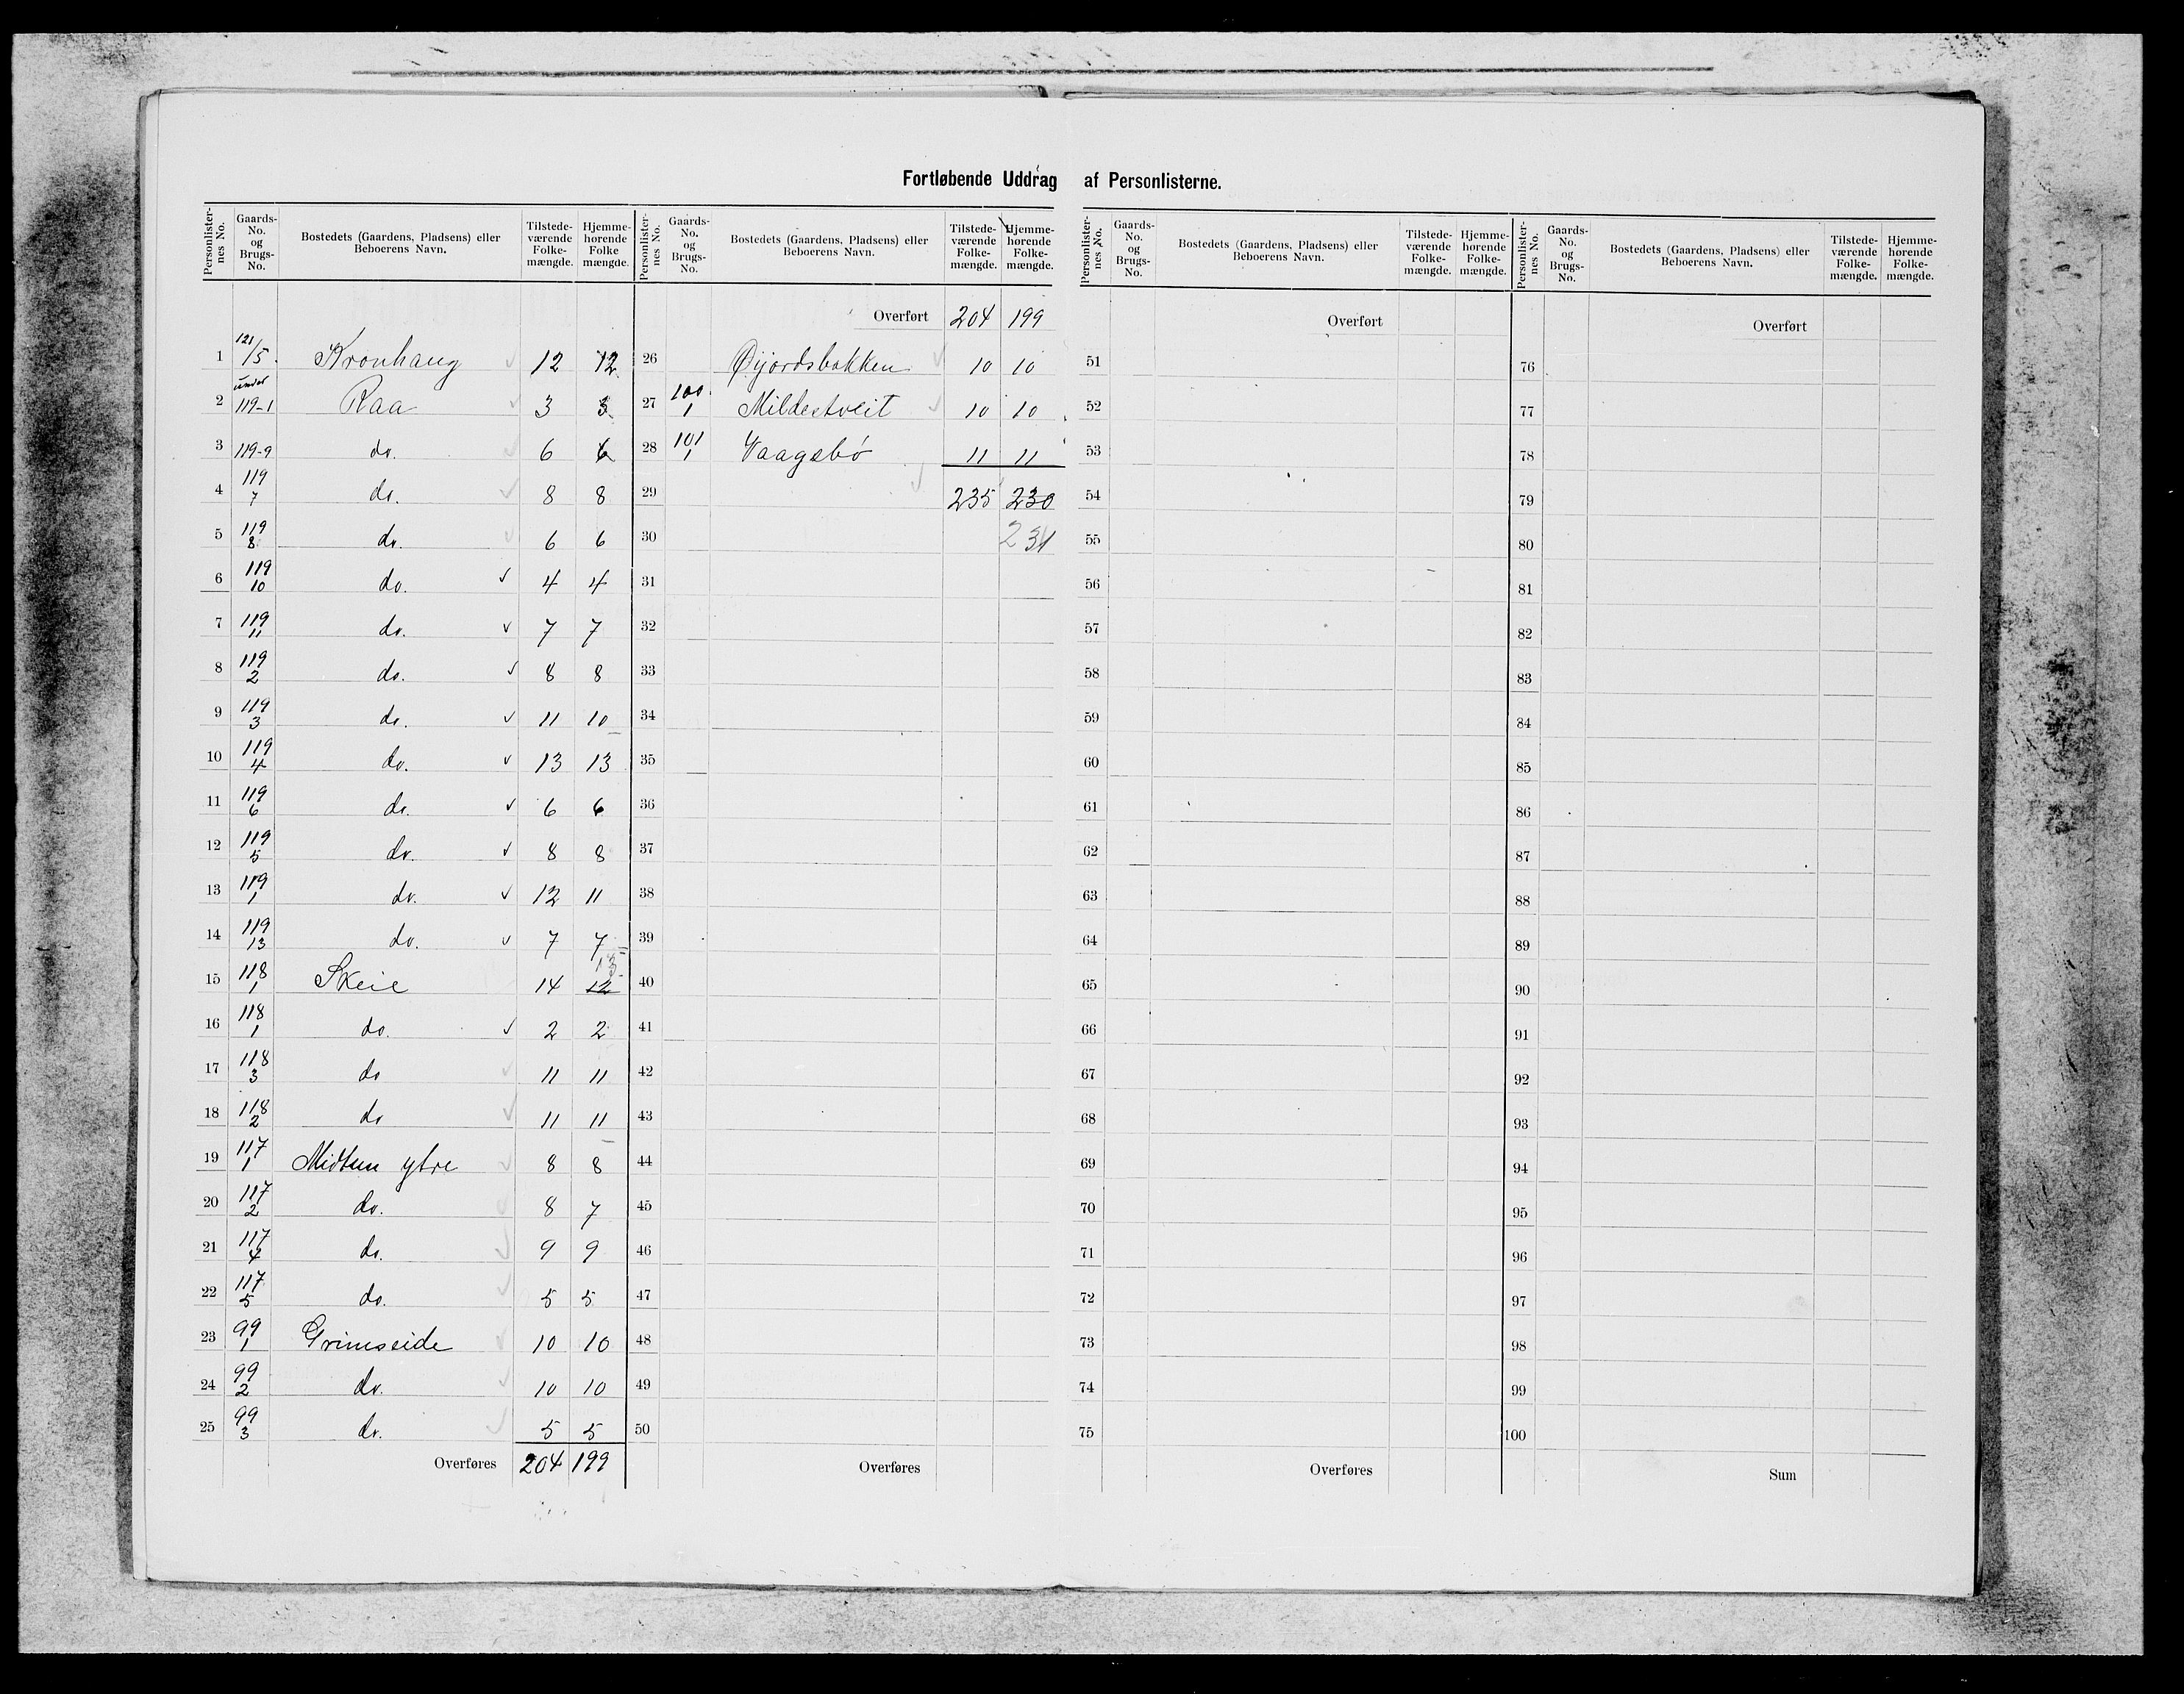 Fortløbende Uddrag af Personlisterne.
Personlister-nes No. Gaards-No. og Brugs-No. Bostedets (Gaardens, Pladsens) eller Beboerens Navn. Tilstede-værende Folke-mængde. Hjemme-hørende Folke mængde.
1 121/5. Kronhaug 12 12
2 under 119-1 Raa 3 3
3 119-9 do. 6 6
4 119 7 do. 8 8
5 119 8 do. 6 6
6 119 10 do. 4 4
7 119 11 do. 7 7
8 119 2 do. 8 8
9 119 3 do. 11 10
10 119 4 do. 13 13
11 119 6 do. 6 6
12 119 5 do. 8 8
13 119 1 do. 12 11
14 119 13 do. 7 7
15 118 1 Skeie 14 12 13
16 118 1 do. 2 2
17 118 3 do 11 11
18 118 2 do 11 11
19 117 1 Midtun ytre 8 8
20 117 2 do. 8 7
21 117 4 do. 9 9
22 117 5 do. 5 5
23 99 1 Grimseide 10 10
24 99 2 do. 10 10
25 99 3 do. 5 5
Overføres 204 199
Personlister-nes No. Gaards-No. og Brugs-No. Bostedets (Gaardens, Pladsens) eller Beboerens Navn. Tilstede-værende Folke-mængde. Hjemme-hørende Folke-mængde.
Overført 204 199
26 Øijordsbakken 10 10
27 100. 1 Mildestveit 10 10
28 101 1 Vaagsbø 11 11
29 235 230
30 231
31
32
33
34
35
36
37
38
39
40
41
42
43
44
45
46
47
48
49
50
Overføres
Personlister-nes No. Gaards-No. og Brugs-No. Bostedets (Gaardens, Pladsens) eller Beboerens Navn. Tilstede-værende Folke-mængde. Hjemme-hørende Folke-mængde.
Overført
51
52
53
54
55
56
57
58
59
60
61
62
63
64
65
66
67
68
69
70
71
72
73
74
75
Overføres
Personlister-nes No. Gaards-No. og Brugs-No. Bostedets (Gaardens, Pladsens) eller Beboerens Navn. Tilstede-værende Folke-mængde. Hjemme-hørende Folke-mængde.
Overført
76
77
78
79
80
81
82
83
84
85
86
87
88
89
90
91
92
93
94
95
96
97
98
99
100
Sum